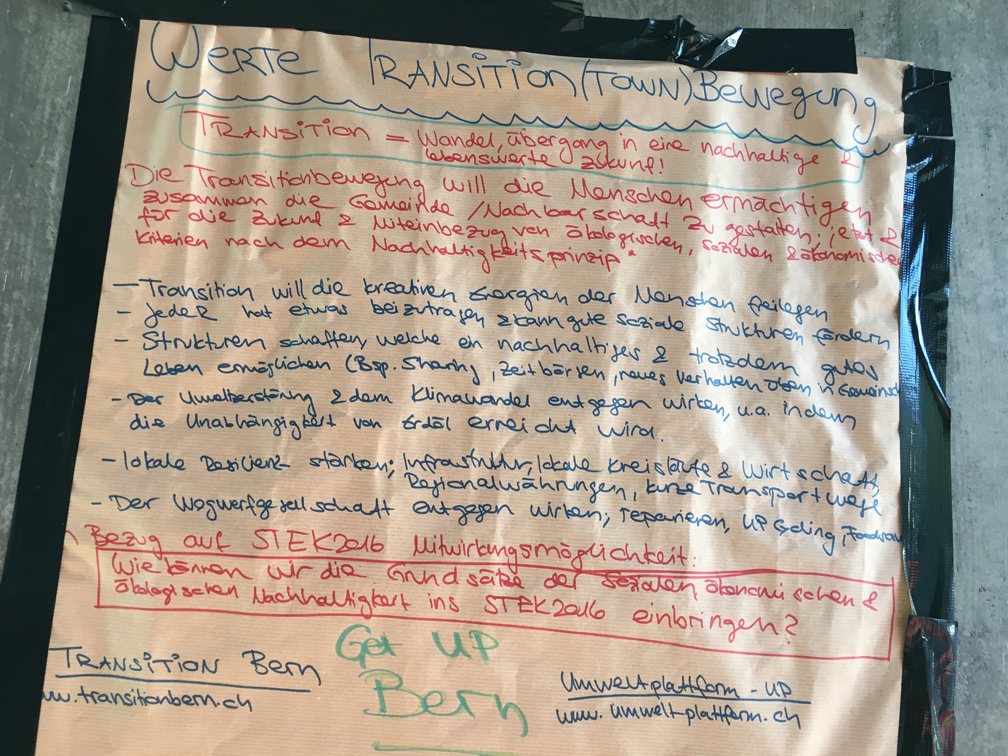 WERTE TRANSITION(TOWN)Bewegung
TRANSITION = Wandel, übergang in eine nachhaltige &
lebenswerte Zukunft!
Die Transitionbewegung will die Menschen ermächtigen
zusammen die Gemeinde / Nachbarschaft zu gestalten, jetzt &
für die Zukunft & Miteinbezug von ökologischen, sozialen & ökonomischen
Kriterien nach dem Nachhaltigkeitsprinzip*
- Transition will die kreativen Energien der Menschen freilegen
- JedeR hat etwas beizutragen & kann gute soziale Strukturen fördern
- Strukturen schaffen, welche ein nachhaltiges & trotzdem gutes
Leben ermöglichen (Bsp. Sharing, Zeitbörsen, neues Verhalten üben in Gemeinsch
- Der Umweltzerstörung & dem Klimawandel entgegen wirken, u.a. indem
die Unabhängigkeit von Erdöl erreicht wird.
- lokale Resilienz stärken; Infrastruktur, lokale Kreisläufe & Wirtschaft,
Regionalwährungen, kurze Transportwege
- Der Wegwerfgesellschaft entgegen wirken; reparieren, UPcycling,
Bezug auf STEK2016 Mitwirkungsmöglichkeit:
Wie können wir die Grundsätze der sozialen ökonomischen &
ökologischen Nachhaltigkeit ins STEK2016 einbringen?
Get UP
Bern
TRANSITION Bern
ww.transitionbern.ch
Umweltplattform - UP
www.umwelt-plattform.ch